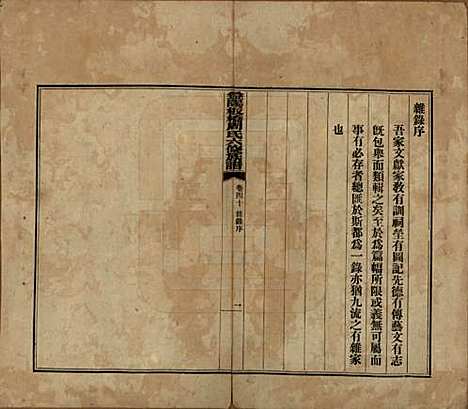 雜錄序
吾家文獻家教有訓祠塋有圖記先德有傳藝文有志
旣包舉而類輯之矣至於為篇幅所限或義無可屬而
事有必存者總匯於斯都為一錄亦猶九流之有雜家
也
板橋周氏六修族譜
卷四十
雜錄序
一